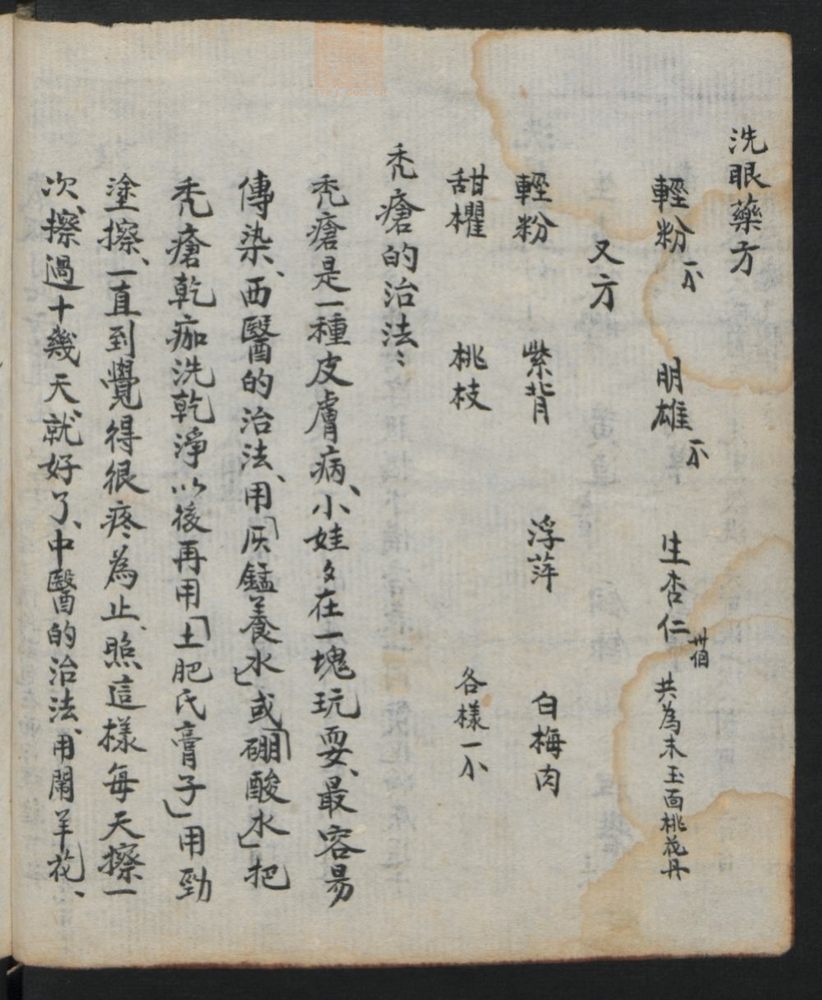 洗眼藥方
輕粉 明雄 生杏仁卅個 共為末玉面桃花丹
又方
輕粉 紫背 浮萍 白梅肉
甜櫂 桃枝 各樣一小
禿瘡的治法：
禿瘡是一種皮膚病、小娃々在一塊玩耍、最容易
傳染、西醫的治法、用「灰錳養水」或「硼酸水」把
禿瘡乾痂洗乾淨以後再用「土肥氏膏子」用勁
塗擦、一直到覺得很疼為止、照這樣每天擦一
次、擦過十幾天、就好了、中醫的治法、用鬧羊花、